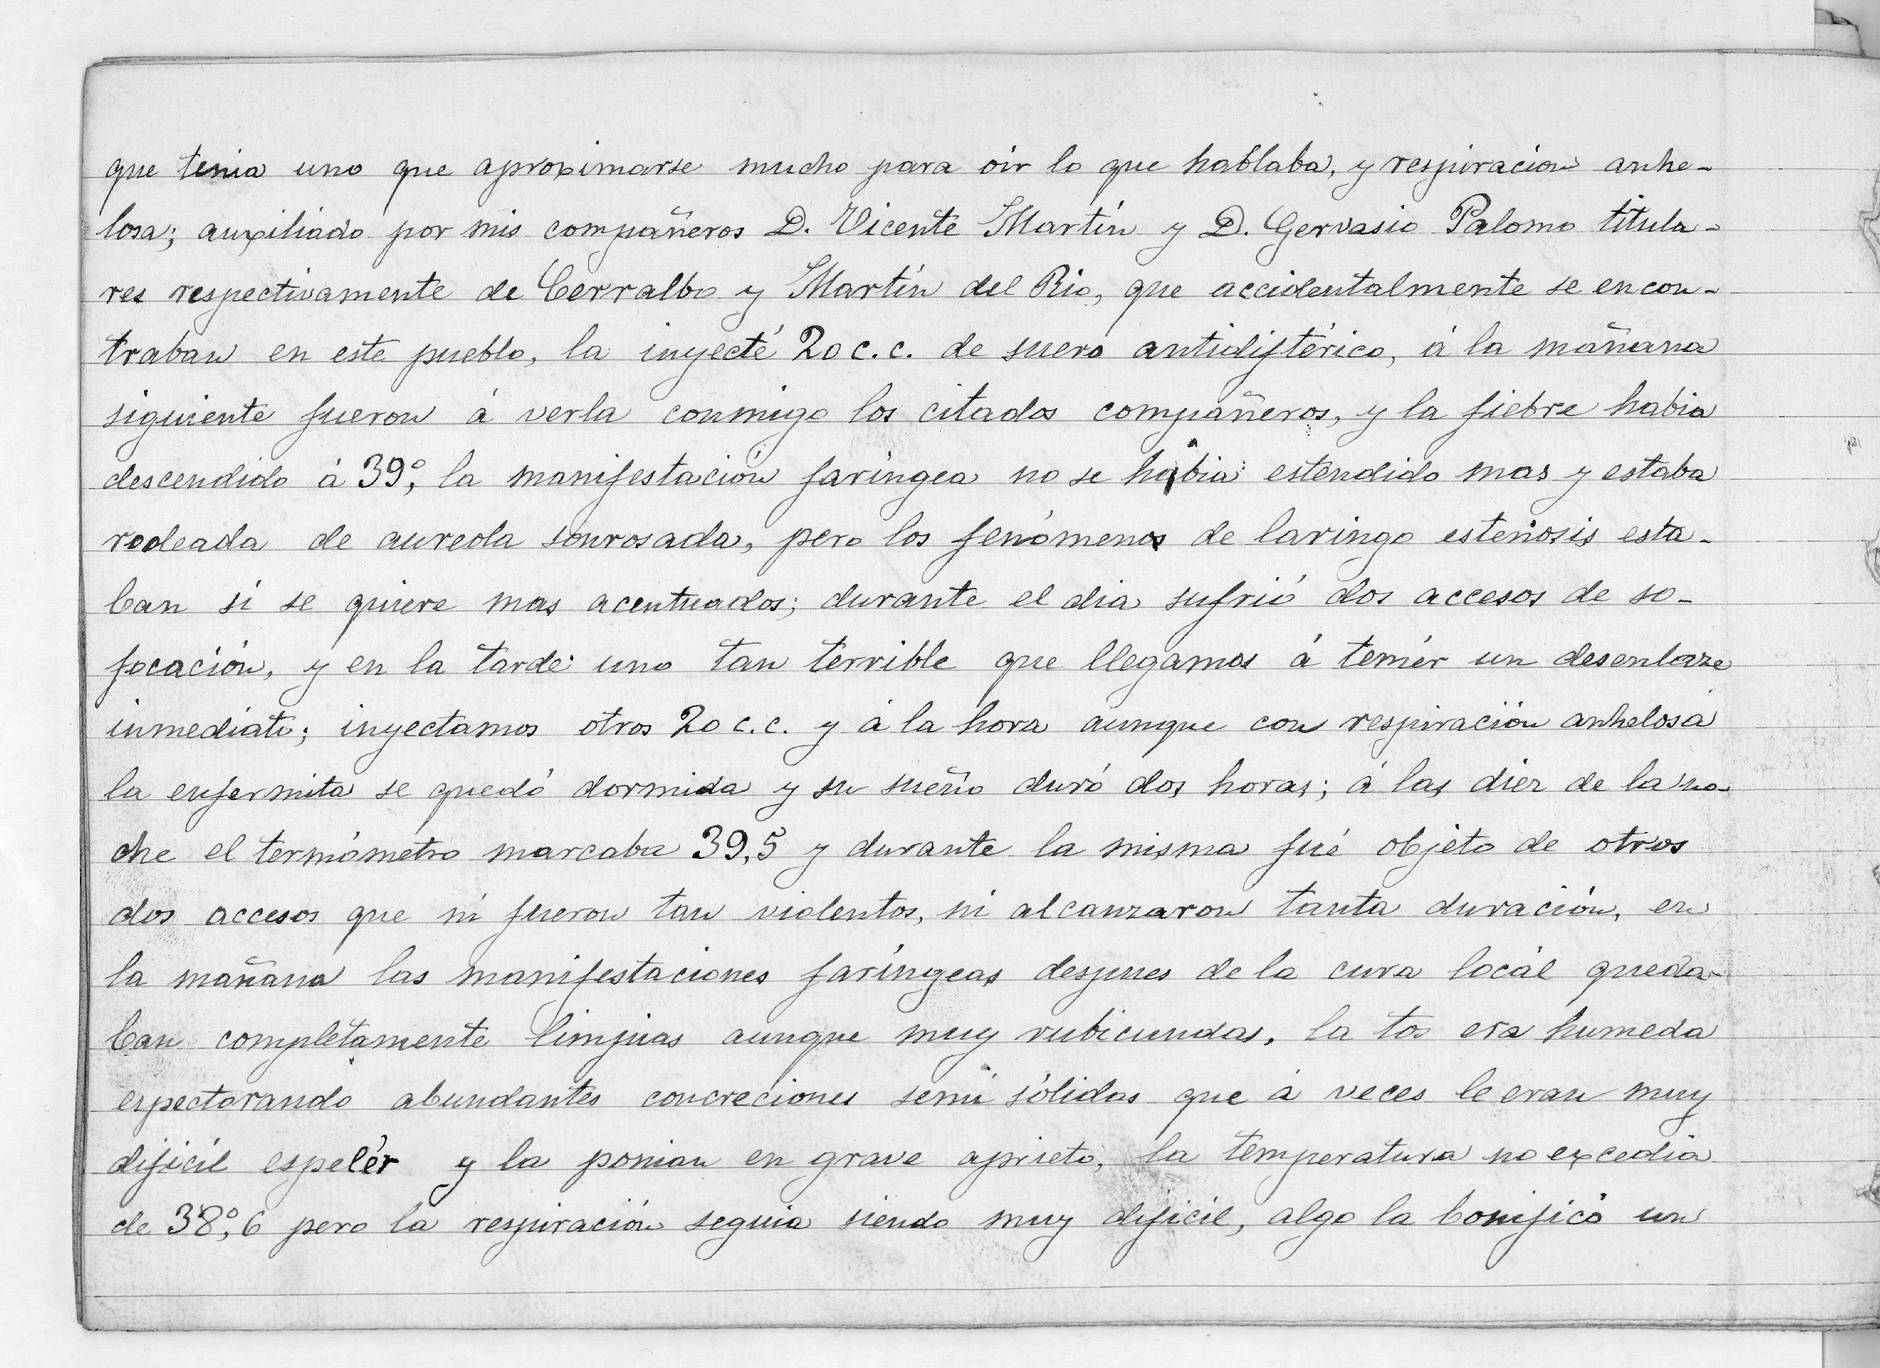 que tenia uno que aproximarse mucho para oir lo que hablaba, y respiracion anhe-
losa; auxiliado por mis compañeros D. Vicente Martín y D. Gervasio Palomo titula-
res respectivamente de Cerralbo y Martín del Rio, que accidentalmente se encon-
traban en este pueblo, la inyecté 20 c.c. de suero antidiftérico, á la mañana
siguiente fueron á verla conmigo los citados compañeros, y la fiebre habia
descendido á 39º, la manifestación faríngea no se habia estendido mas y estaba
rodeada de aureola sonrosada, pero los fenómenos de laringo estenosis esta-
ban si se quiere mas acentuados; durante el dia sufrió dos accesos de so-
focación, y en la tarde uno tan terrible que llegamos á temér un desenlaze
inmediato; inyectamos otros 20 c.c. y á la hora aunque con respiración anhelosa
la enfermita se quedó dormida y su sueño duró dos horas; á las diez de la no-
che el termómetro marcaba 39,5 y durante la misma fué objeto de otros
dos accesos que ni fueron tan violentos, ni alcanzaron tanta duración, en
la mañana las manifestaciones faríngeas despues de la cura locál queda-
ban completamente limpias aunque muy rubicundas, la tos era humeda
espectorando abundantes concreciones semi sólidas que á veces le eran muy
dificíl espelér y la ponian en grave aprieto, la temperatura no excedia
de 38º,6 pero la respiración seguia siendo muy dificíl, algo la bonificó un